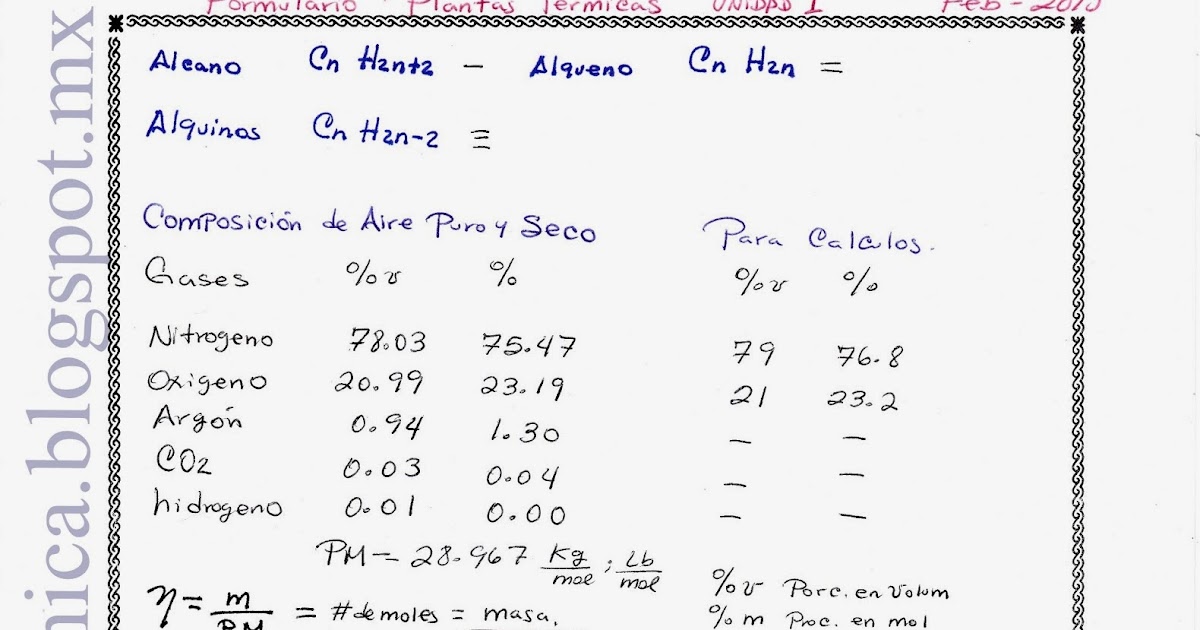 Formulario Plantas Térmicas UNIDAD I Feb-2015
Alcano Cn H2n+2 — Alqueno Cn H2n =
Alquinos Cn H2n-2 ≡
Composición de Aire Puro y Seco Para Calculos.
Gases %v % %v %
Nitrogeno 78.03 75.47 79 76.8
Oxigeno 20.99 23.19 21 23.2
Argón 0.94 1.30 — —
CO2 0.03 0.04 — —
hidrogeno 0.01 0.00 — —
PM = 28.967 Kg/mol ; Lb/mol
%v Porc. en Volum
η = m/PM = # de moles = masa,
%m Proc. en mol
nica.blogspot.mx